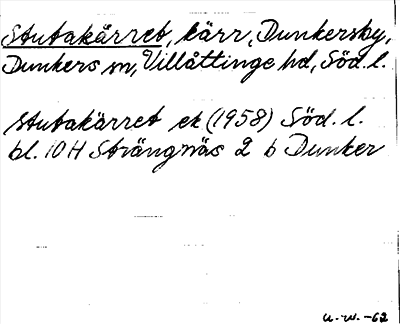 Stutakärret, kärr, Dunkersby,
Dunkers sn, Villåttinge hd, Söd. l.
Stutakärret ek (1958) Söd. l.
bl. 10 H Strängnäs 2 b Dunker
u.w.-62